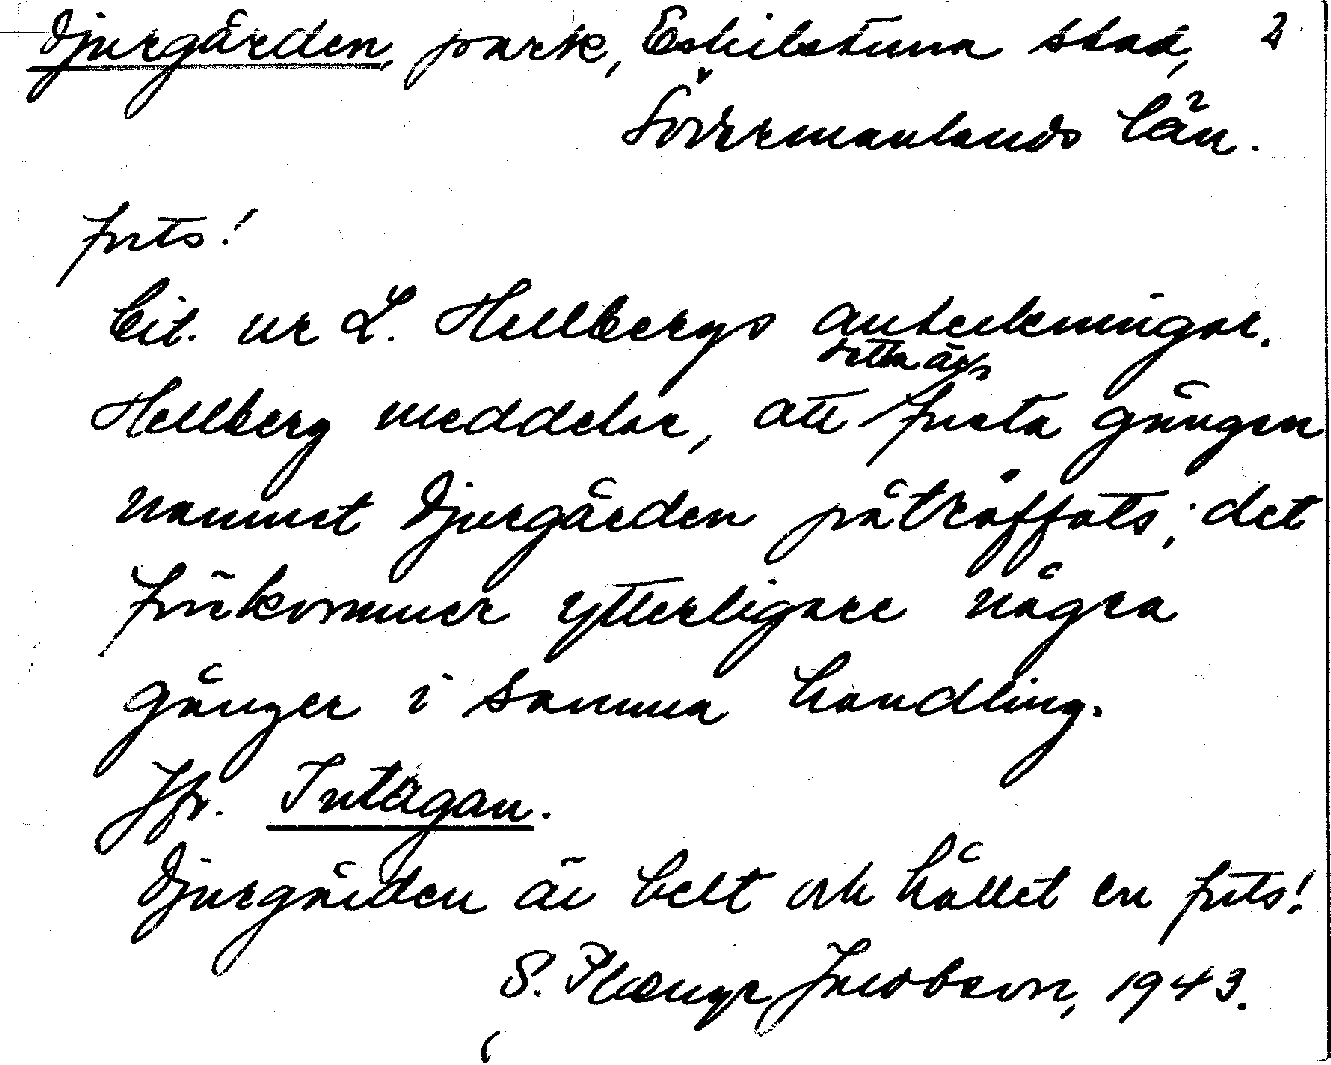 Djurgården, park, Eskilstuna stad, 2
Södermanlands län.
forts!
Cit. ur L. Hellbergs anteckningar.
detta är
Hellberg meddelar, att första gången
namnet Djurgården påträffats; det
förekommer ytterligare några
gånger i samma handling.
Jfr. Intagan.
Djurgården är helt och hållet en forts!
S. Jacobson, 1943.